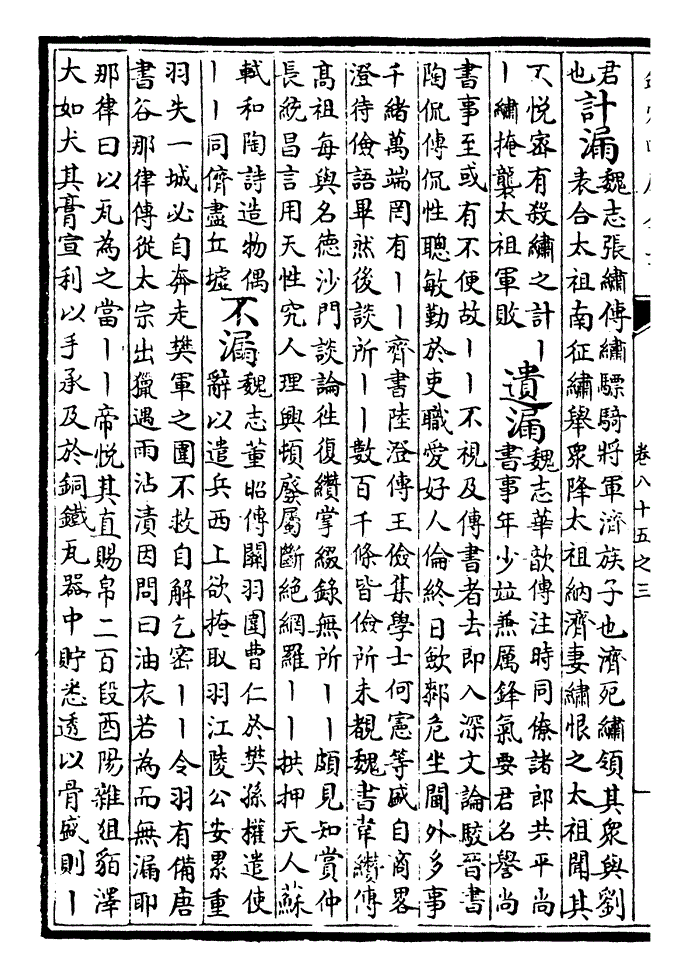 卷八十五之三
君
也
計漏
魏志張繡傳繡驃騎將軍濟族子也濟死繡領其衆與劉
表合太祖南征繡舉衆降太祖納濟妻繡恨之太祖聞其
不悅密有殺繡之計丨
丨繡掩襲太祖軍敗
遺漏
魏志華歆傳注時同僚諸郎共平尚
書事年少竝兼厲鋒氣要君名譽尚
書事至或有不便故丨丨不視及傳書者去即入深文論駁晉書
陶侃傳侃性聰敏勤於吏職愛好人倫終日歛厀危坐閫外多事
千緒萬端罔有丨丨齊書陸澄傳王儉集學士何憲等盛自商畧
澄待儉語畢然後談所丨丨數百千條皆儉所未覩魏書韋纘傳
高祖每與名德沙門談論徃復纘掌綴錄無所丨丨頗見知賞仲
長統昌言用天性究人理興頓廢屬斷絕網羅丨丨拱押天人蘇
軾和陶詩造物偶
丨丨同儕盡丘墟
不漏
魏志董昭傳關羽圍曹仁於樊孫權遣使
辭以遣兵西上欲掩取羽江陵公安累重
羽失一城必自奔走樊軍之圍不救自解乞密丨丨令羽有備唐
書谷那律傳從太宗出獵遇雨沾漬因問曰油衣若為而無漏耶
那律曰以瓦為之當丨丨帝悅其直賜帛二百段酉陽雜俎貊澤
大如犬其膏宣利以手承及於銅鐵瓦器中貯悉透以骨盛則丨